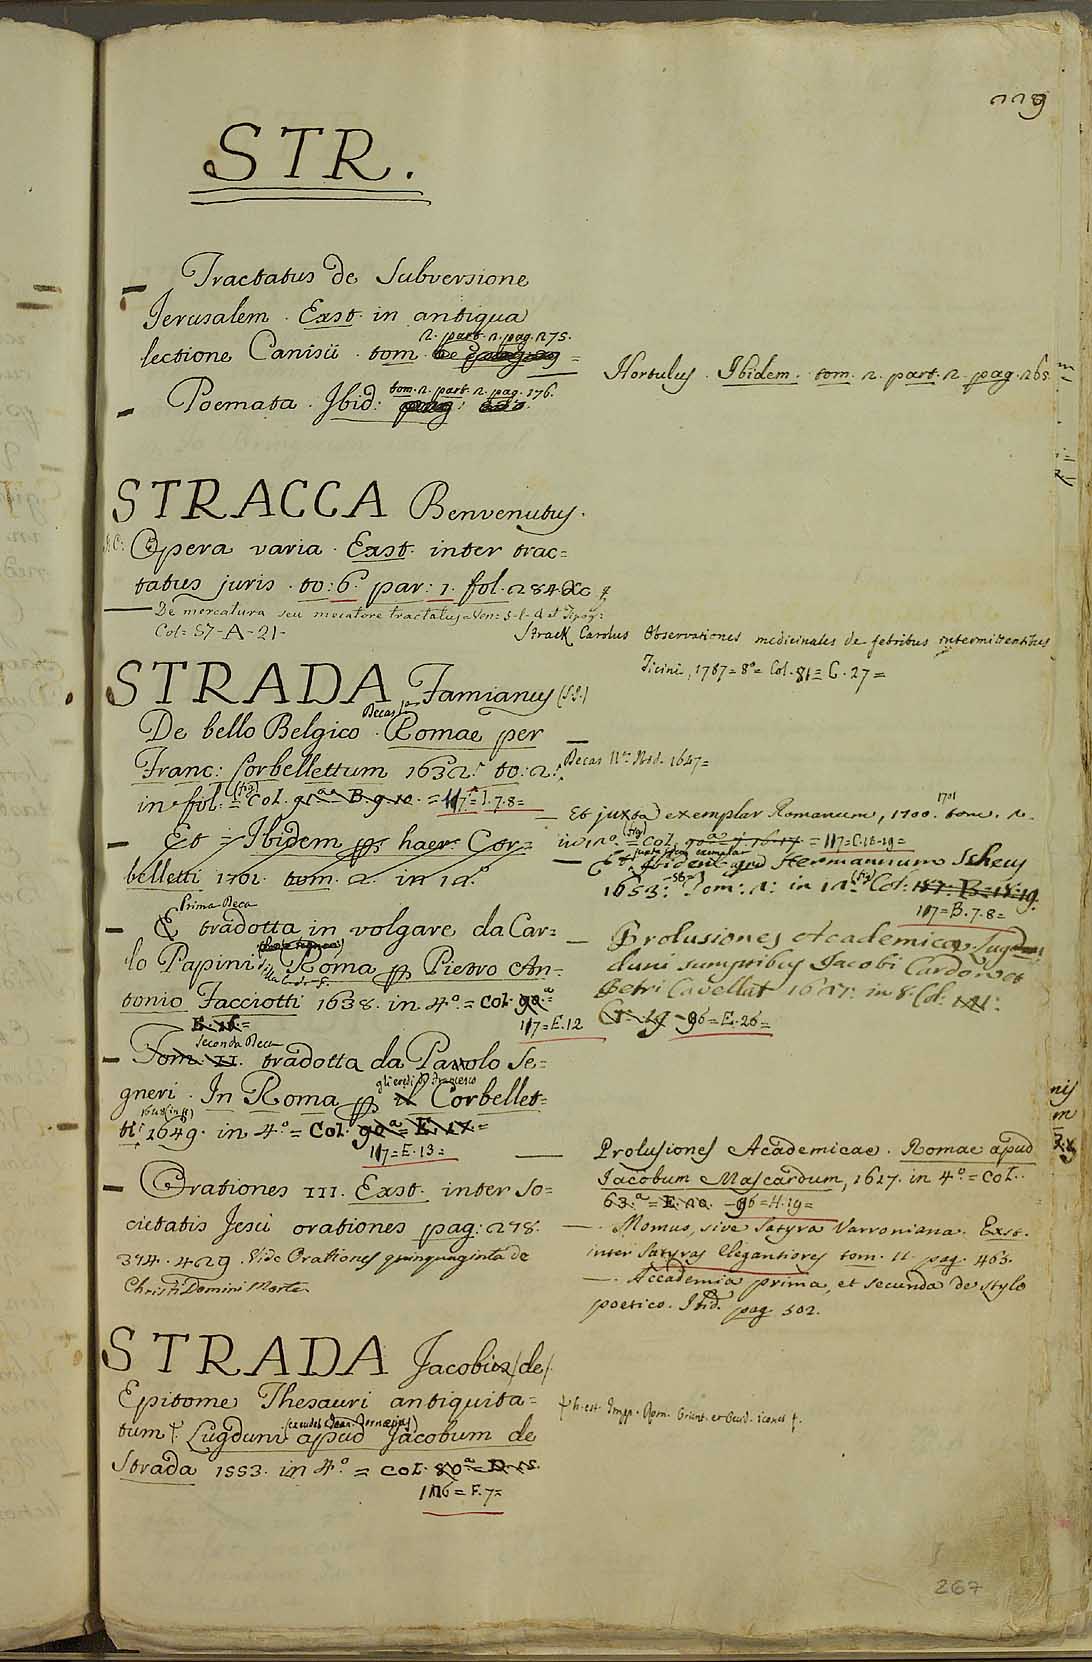 229
STR.
Tractatus de Subversione
Jerusalem. Exst. in antiqua
2. part. 2. pag. 275.
lectione Canisii. tom.
Hortulus. Ibidem. tom. 2. part. 2. pag. 265.
tom. 2. part. 2. pag. 176.
Poemata. Ibid:
STRACCA Benvenutus.
Opera varia. Exst. inter trac=
tatus juris. to: 6. par: 1. fol. 284.
De mercatura seu mercatore tractatus
Col: 87-A-21-
Strack Carolus Observationes medicinales de febribus intermittentibus
Ticini, 1787= 8°= Col. 81= C. 27=
STRADA Famianus (S.J.)
Decas
De bello Belgico. Romae per
Franc: Corbellettum 1632. to: 2.
in fol: = Col. 91ª= B. 9. 10. = 117= J. 7. 8=
Decas IIª 1647=
Et Ibidem pp haer. Cor=
belletti 1701. tom. 2. in 12°
Et juxta exemplar Romanum, 1700. 1701 tom. 2.
in 12° = Col. 90ª = 16. 17. = 117= C. 18. 19=
Et Ibidem apud Hermannum Scheus
1653: Tom: 2: in 12: Col: 187: B= 18: 19.
117= B. 7. 8=
Prima Deca
E tradotta in volgare da Car=
lo Papini Roma pp Pietro An=
tonio Facciotti 1638. in 4°. = Col. 90.ª=
E. 16.=
117= E. 12
Prolusiones Academicae Lugd
duni sumptibus Jacobi Cardon et
Petri Cavellat 1627: in 8. Col: 121:
- 96= E. 26=
Seconda Deca
Tom. II. tradotta da Pavolo Se=
gneri. In Roma pp gli eredi di Francesco il Corbellet=
ti 1648 (in f) 1649. in 4°= Col. 90ª= E. 17=
117= E. 13=
Orationes III. Exst. inter So=
cietatis Jesu orationes pag: 278.
374. 429. Vide Orationes quinquaginta de
Christi Domini Morte
Prolusiones Academicae. Romae apud
Jacobum Mascardum, 1617. in 4°= Col.
63.ª= E. 20. - 96= H. 19=
Momus, sive Satyra Varroniana. Exst.
inter Satyras Elegantiores tom. II. pag. 463.
Accademia prima, et secunda de stylo
poetico. Ibid. pag. 502.
STRADA Jacobus (de)
Epitome Thesauri antiquita=
tum Lugduni apud Jacobum de
Strada 1553. in 4°. = Col. 80ª= D. 15.
116= F. 7=
267